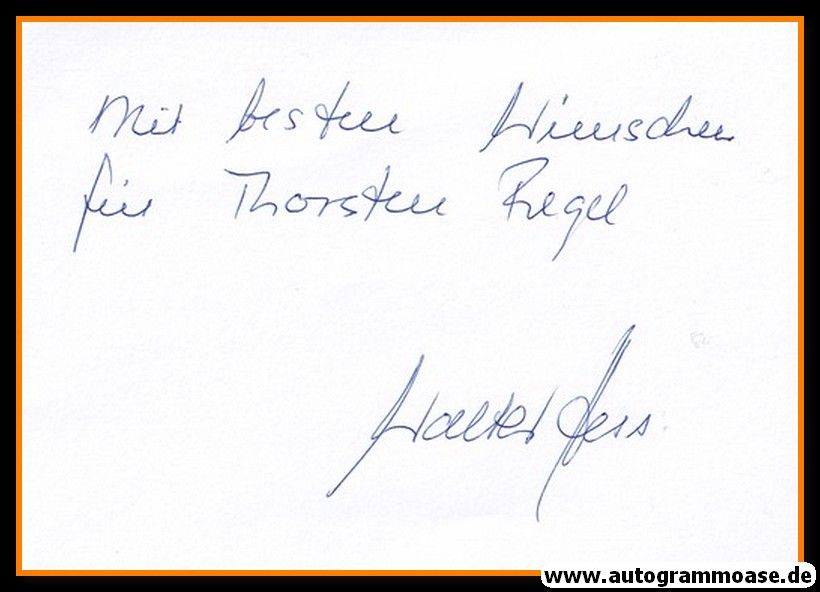 Mit besten Wünschen
für Thorsten Regel
Walter Hess
www.autogrammoase.de